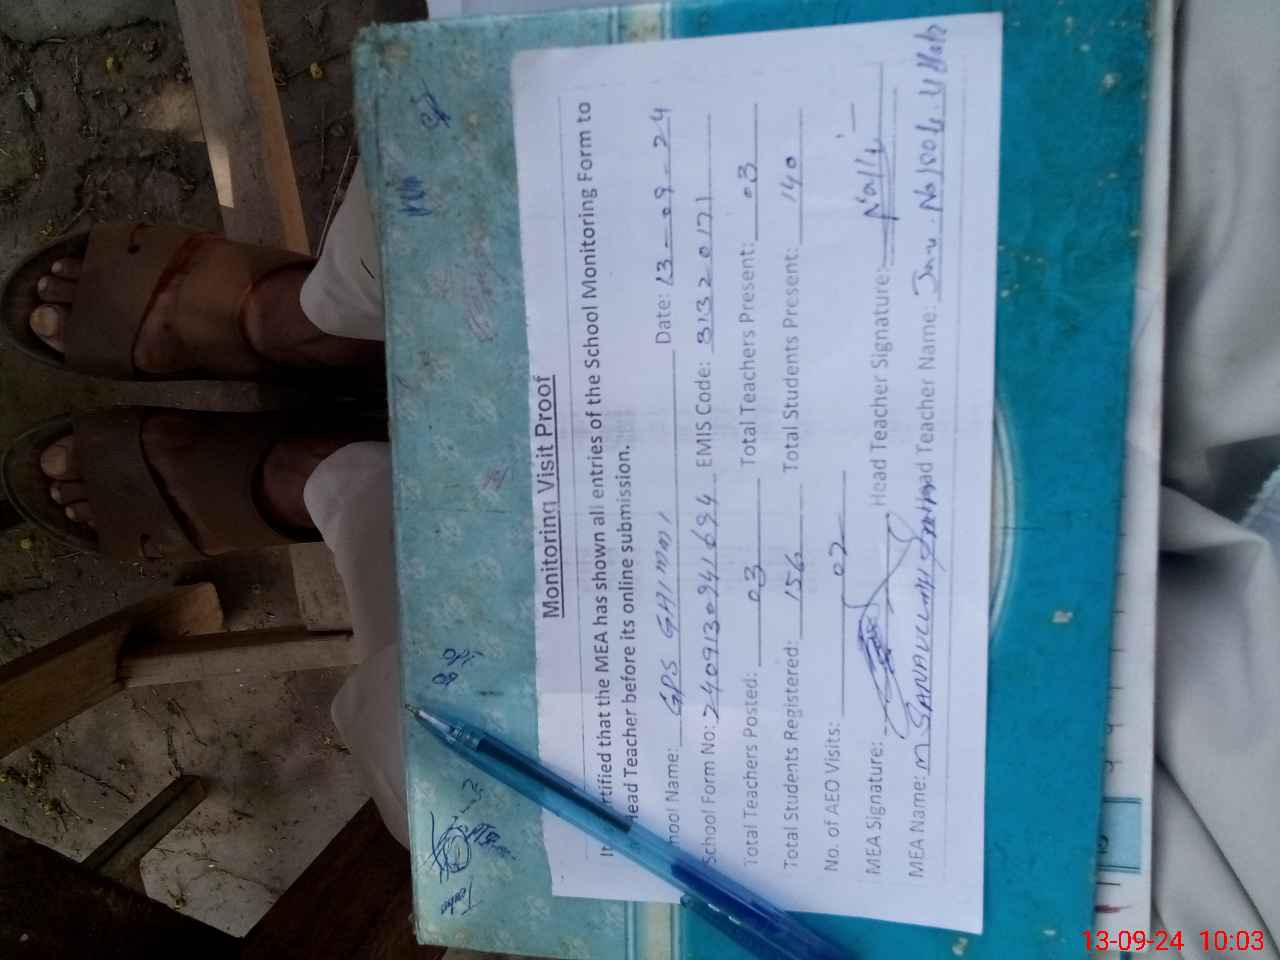 Monitoring Visit Proof
It rtified that the MEA has shown all entries of the School Monitoring Form to
Head Teacher before its online submission.
hool Name: GPS GHIMMI Date: 13-09-24
School Form No: 2409130941694 EMIS Code: 31320171
Total Teachers Posted: 03 Total Teachers Present: 03
Total Students Registered: 156 Total Students Present: 140
No. of AEO Visits: 02
MEA Signature: Head Teacher Signature:
MEA Name: M SANAULLAH ad Teacher Name:
13-09-24 10:03